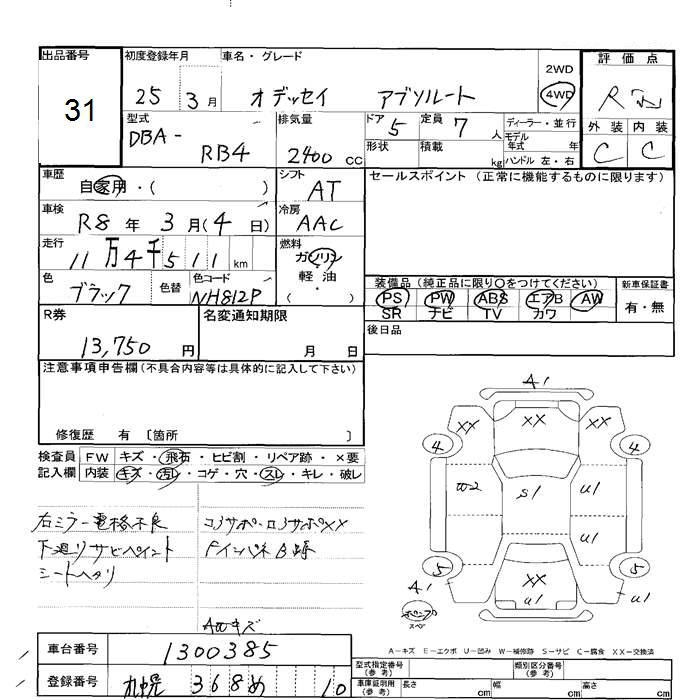 出品番号
31
初度登録年月
25 3月
車名・グレード
オデッセイ アブソルート
2WD
4WD
評価点
R
外装 内装
C C
型式
DBA-
RB4
排気量
2400 CC
ドア 5
定員 7 人
形状
積載 kg
ディーラー・並行
モデル年式 年
ハンドル 左・右
車歴
自家用・( )
シフト
AT
セールスポイント (正常に機能するものに限ります)
車検
R8 年 3 月(4 日)
冷房
AAC
走行
11万4千511 km
燃料
ガソリン
軽・油
・
( )
色
ブラック
色替
色コード
NH812P
装備品 (純正品に限り〇をつけてください)
PS PW ABS エアB AW
SR ナビ TV カワ
新車保証書
有・無
R券
13,750 円
名変通知期限
月 日
後日品
注意事項申告欄 (不具合内容等は具体的に記入して下さい)
修復歴 有 〔箇所 〕
検査員記入欄
FW キズ・飛石・ヒビ割・リペア跡・×要
内装 キズ・汚レ・コゲ・穴・スレ・キレ・破レ
右ミラー電格不良
下廻りサビペイント
シートヘタリ
コアサポ・ロアサポXX
AWキズ
A1
XX XX XX
4 4
W2 S1 U1
U1
5 5
XX
U1 U1
A1
スペア
A-キズ E-エクボ U-凹み W-補修跡 S-サビ C-腐食 XX-交換済
車台番号
1300385
登録番号
札幌 368 め 10
型式指定番号
(参考)
類別区分番号
(参考)
車庫証明用
(参考)
長さ cm
幅 cm
高さ cm